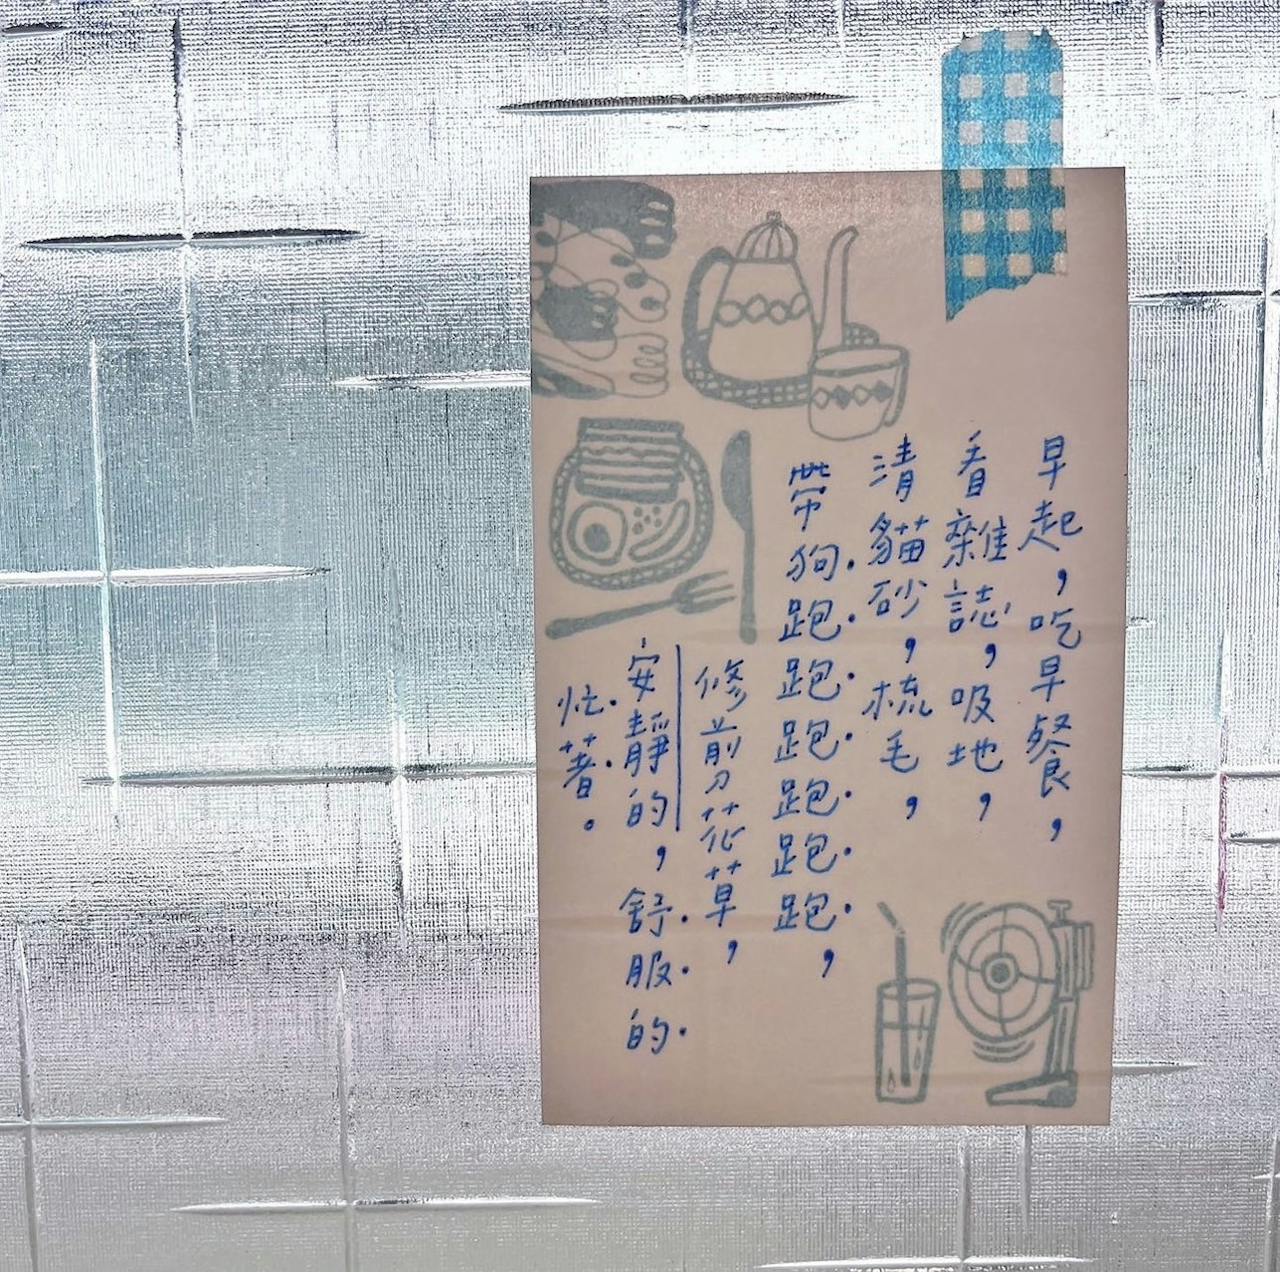 早起，吃早餐，
看雜誌，吸地，
清貓砂，梳毛，
帶狗跑跑跑跑跑跑，
修剪花草，
安靜的，舒服的
忙著。